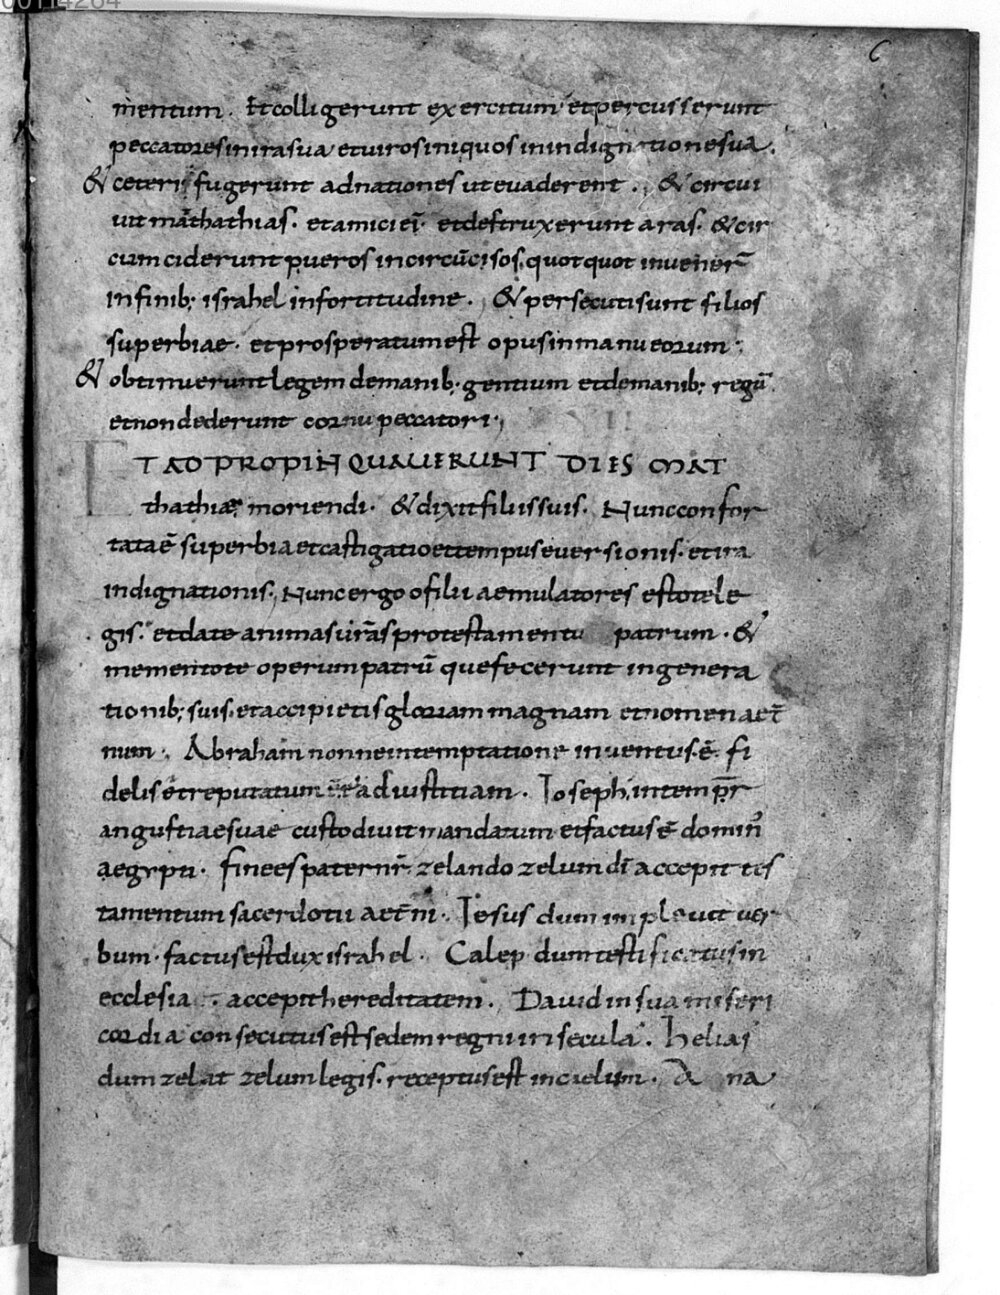 00114264
C
mentum. Et colligerunt exercitum et percusserunt
peccatores in ira sua et uiros iniquos in indignatione sua.
& ceteri fugerunt ad nationes ut euaderent. & circui
uit mathathias. et amici ei. et destruxerunt aras. & cir
cumciderunt pueros incircūcisos. quotquot inuener̄
in finib; israhel in fortitudine. & persecuti sunt filios
superbiae. et prosperatum est opus in manu eorum;
& obtinuerunt legem de manib; gentium et de manib; regū
et non dederunt cornu peccatori;
ET ADPROPINQUAUERUNT DIES MAT
thathiae moriendi. & dixit filiis suis. Nunc confor
tata ē superbia et castigatio et tempus euersionis. et ira
indignationis. Nunc ergo o filii aemulatores estote le
gis. et date animas ur̄as pro testamentu patrum. &
mementote operum patrū que fecerunt in genera
tionib; suis. et accipietis gloriam magnam et nomen aet̄
num. Abraham nonne in temptatione inuentus. ē fi
delis et reputatum ad iustitiam. Ioseph in temp̄r
angustiae suae custodiuit mandatum et factus ē domin̄
aegypti. finees pater nr̄ zelando zelum dī accepit tes
tamentum sacerdotii aet̄ni. Iesus dum impleuit uer
bum. factus est dux israhel. Calep dum testificatus in
ecclesia accepit hereditatem. Dauid in sua miseri
cordia consecutus est sedem regni in secula. Helias
dum zelat zelum legis. receptus est in cielum. A na